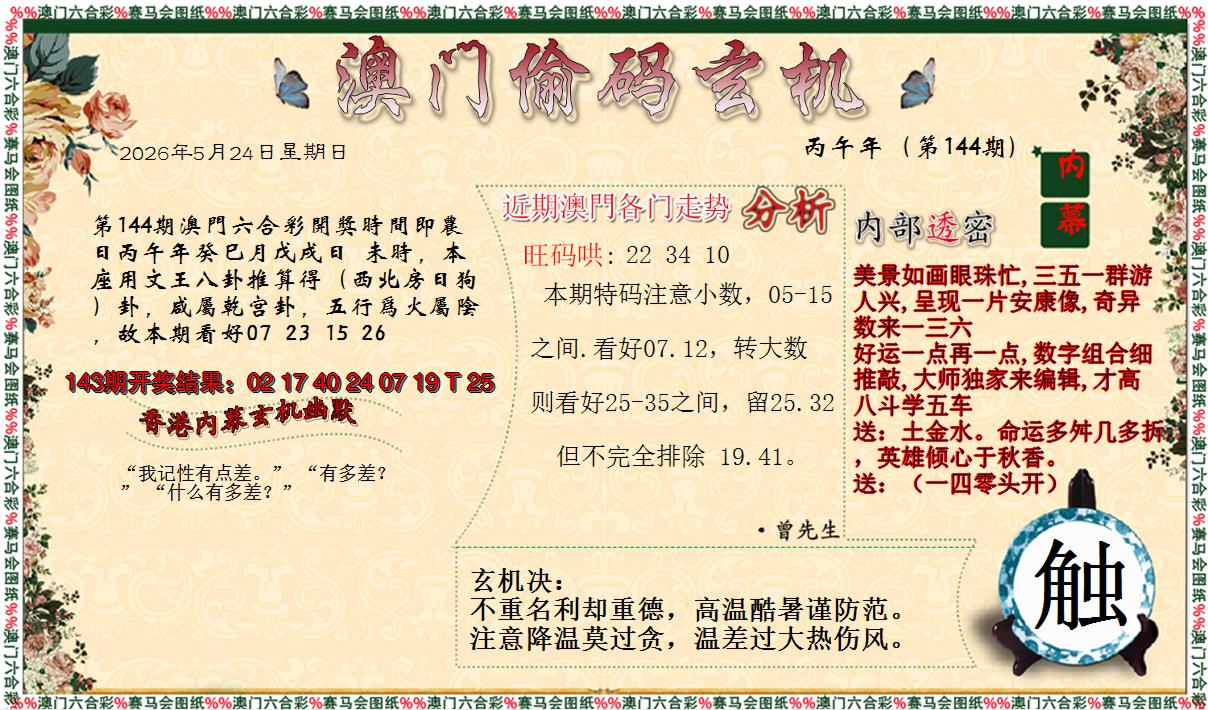 %%澳门六合彩%赛马会图纸%%澳门六合彩%赛马会图纸%%澳门六合彩%赛马会图纸%%澳门六合彩%赛马会图纸%%澳门六合彩%赛马会图纸%%澳门六合彩%赛马会图纸%%
澳门偷码玄机
2026年5月24日星期日
丙午年（第144期）
内
幕
第144期澳門六合彩開獎時間即農
日丙午年癸巳月戊戌日 未時，本
座用文王八卦推算得（西北房日狗
）卦，咸屬乾宫卦，五行爲火屬陰
，故本期看好07 23 15 26
143期开奖结果：02 17 40 24 07 19 T 25
香港内幕玄机幽默
“我记性有点差。” “有多差？
” “什么有多差？”
近期澳門各门走势 分析
旺码哄: 22 34 10
本期特码注意小数，05-15
之间.看好07.12，转大数
则看好25-35之间，留25.32
但不完全排除 19.41。
·曾先生
内部透密
美景如画眼珠忙,三五一群游
人兴,呈现一片安康像,奇异
数来一三六
好运一点再一点,数字组合细
推敲,大师独家来编辑,才高
八斗学五车
送：土金水。命运多舛几多拆
，英雄倾心于秋香。
送：（一四零头开）
玄机决：
不重名利却重德，高温酷暑谨防范。
注意降温莫过贪，温差过大热伤风。
触
%%澳门六合彩%赛马会图纸%%澳门六合彩%赛马会图纸%%澳门六合彩%赛马会图纸%%澳门六合彩%赛马会图纸%%澳门六合彩%赛马会图纸%%澳门六合彩%赛马会图纸%%